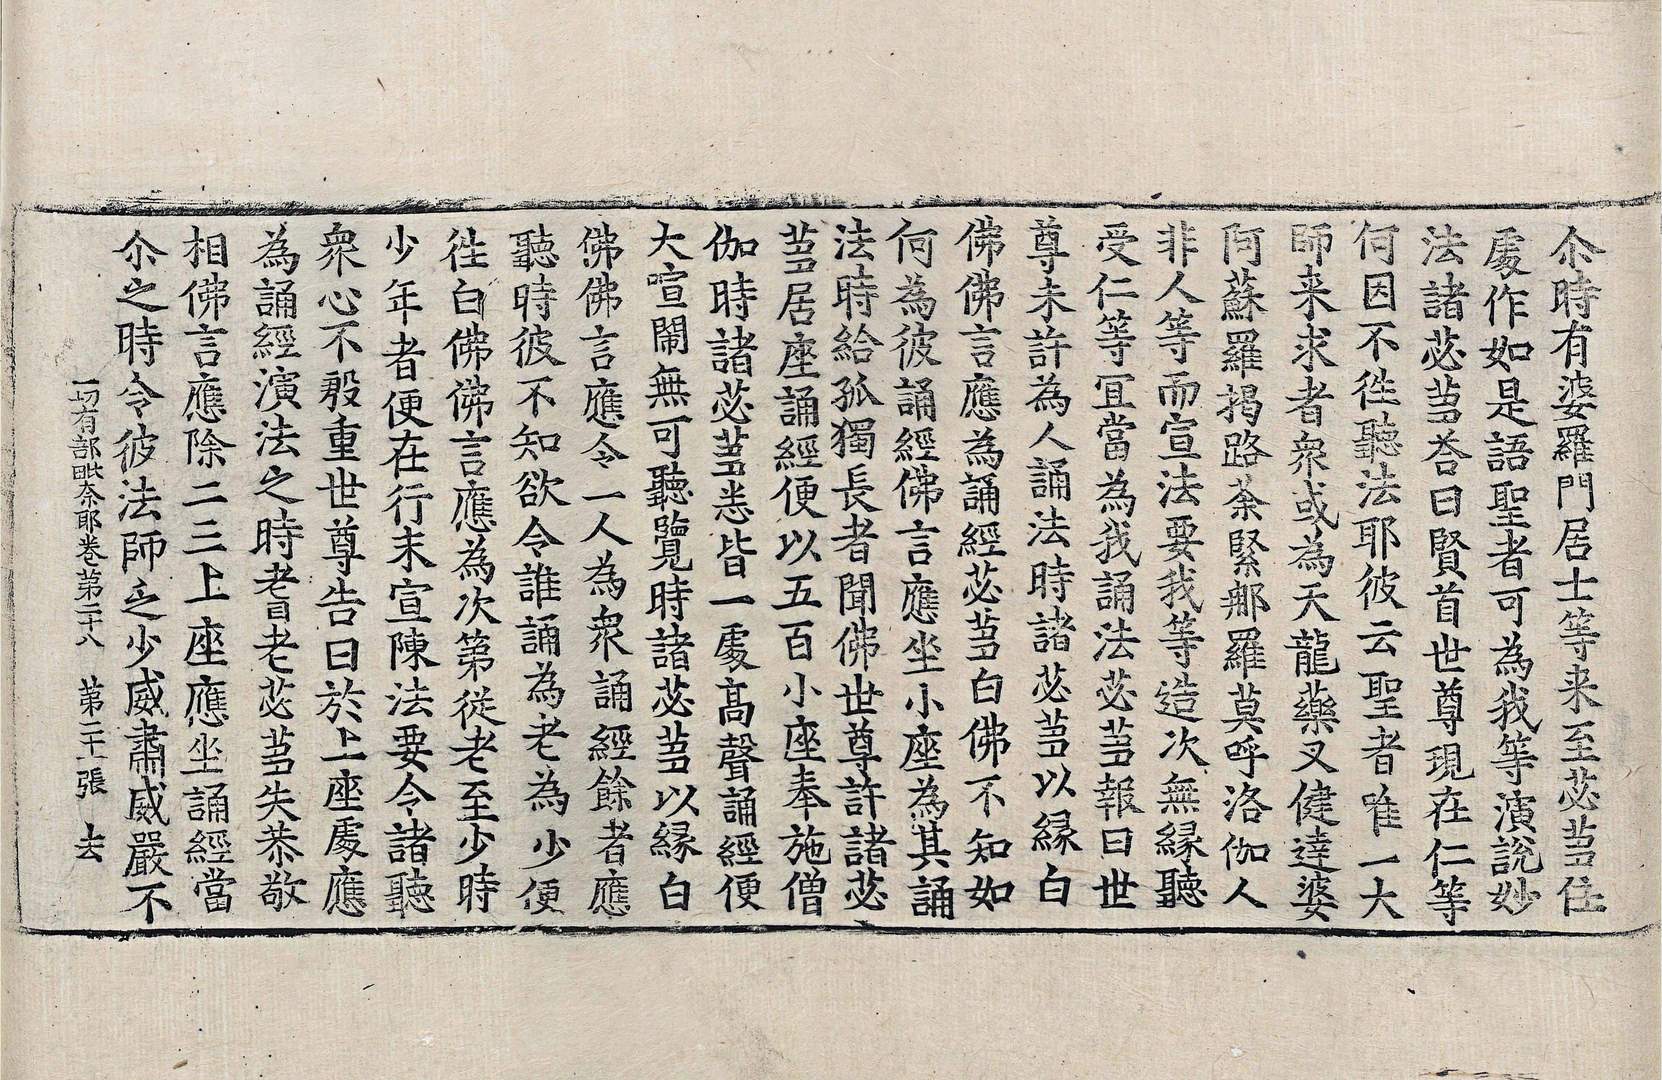 尒時有婆羅門居士等来至苾蒭住
處作如是語聖者可為我等演說妙
法諸苾蒭荅曰賢首世尊現在仁等
何因不徃聽法耶彼云聖者唯一大
師来求者衆或為天龍藥叉健達婆
阿蘇羅揭路荼緊那羅莫呼洛伽人
非人等而宣法要我等造次無緣聽
受仁等宜當為我誦法苾蒭報曰世
尊未許為人誦法時諸苾蒭以緣白
佛佛言應為誦經苾蒭白佛不知如
何為彼誦經佛言應坐小座為其誦
法時給孤獨長者聞佛世尊許諸苾
蒭居座誦經便以五百小座奉施僧
伽時諸苾蒭悉皆一處高聲誦經便
大喧鬧無可聽覽時諸苾蒭以緣白
佛佛言應令一人為衆誦經餘者應
聽時彼不知欲令誰誦為老為少便
徃白佛佛言應為次第從老至少時
少年者便在行末宣陳法要令諸聽
衆心不殷重世尊告曰於上座處應
為誦經演法之時耆老苾蒭失恭敬
相佛言應除二三上座應坐誦經當
尒之時令彼法師乏少威肅威嚴不
一切有部毗奈耶卷第二十八　第二十一張　去